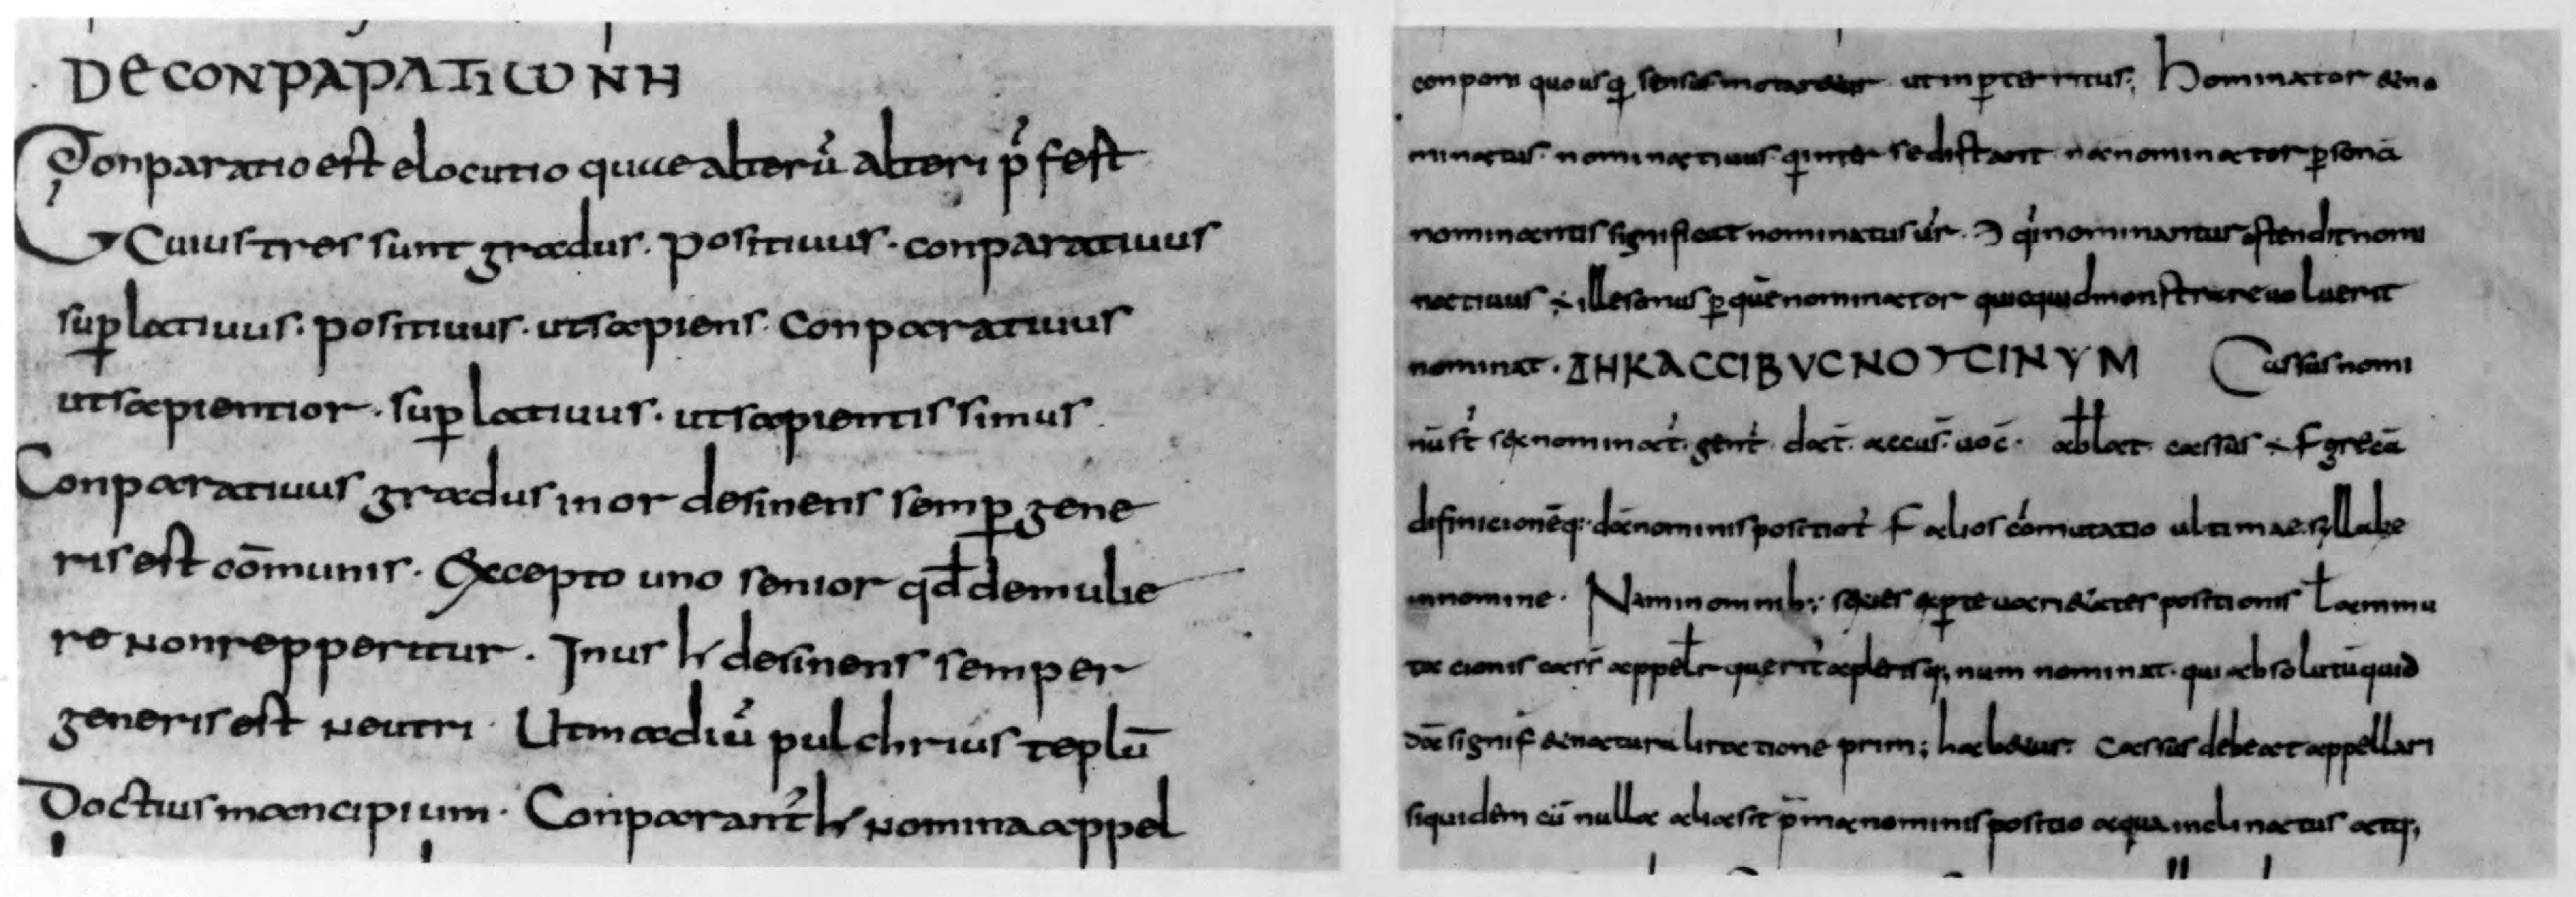 De CONPAPATIωNH
Conparatio est elocutio quae alterũ alteri p̃fest
Cuius tres sunt gradus. positiuus. conparatiuus
suplatiuus. positiuus. ut sapiens. Conparatiuus
ut sapientior. suplatiuus. ut sapientissimus.
Conparatiuus gradus in or desinens semp gene
ris est cōmunis. Excepto uno senior qđ de mulie
re non repperitur. In us h desinens semper
generis est neutri. Ut mediũ pulchrius teplū
Doctius mancipium. Conparant̃ h nomina appel
ut in p̱teritus; Nominator &no
minatus. nominatiuus. q inter se distant na nominator p̱sonā
nominantis significat nominatus ūr. qi nominantur ostendit nomi
natiuus ÷ ille sonus p̱ quē nominator quicquid monstrare uoluerit
nominat. ΔHKACCIBVCNOYCINYM Cassus nomi
nū st̃ sex nominat̃. gent̃. dat̄. accus̄. uoc̄. ablat. cassus ÷ F grecā
difinicionēq: dā nominis F alios cōmutatio ultimae syllabe
in nomine. Nam in omnib; positionis
tacionis num nominat. qui absolutū quid
dā signif &naturali ratione prim; hab&ur. Cassus debeat appellari
siquidēm cū nulla alia sit p̄ma nominis positio a qua inclinatus